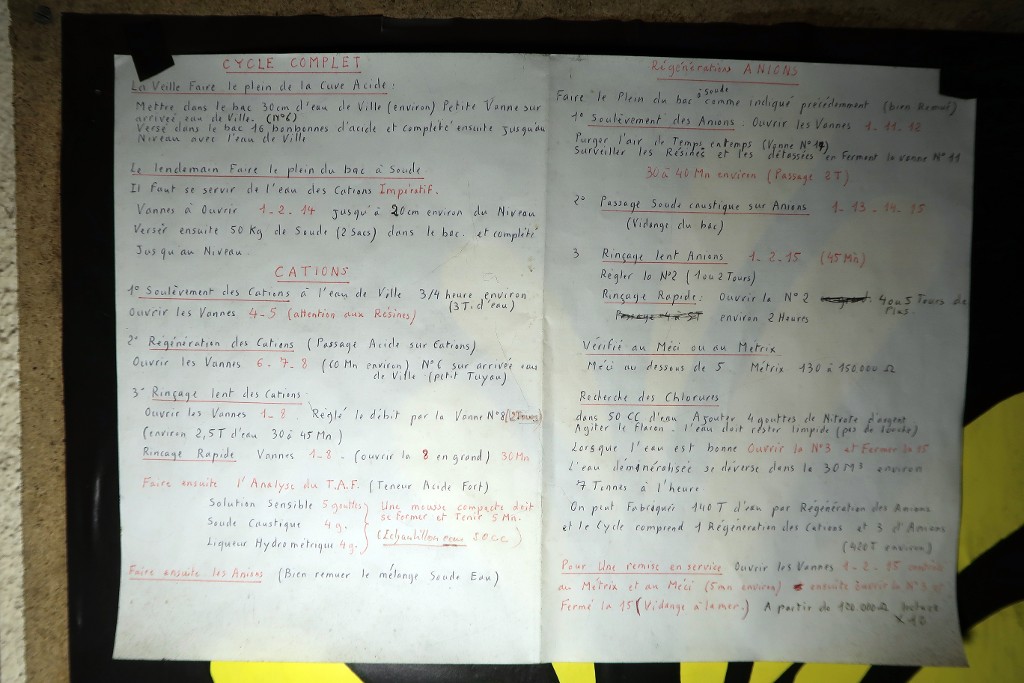 CYCLE COMPLET
La Veille Faire le plein de la Cuve Acide :
Mettre dans le bac 30cm d'eau de Ville (environ) Petite Vanne sur
arrivée eau de Ville. (N°6)
Versé dans le bac 16 bonbonnes d'acide et complété ensuite jusqu'au
Niveau avec l'eau de Ville
Le lendemain Faire le plein du bac à Soude
Il faut se servir de l'eau des Cations Impératif.
Vannes à Ouvrir 1-2-14 jusqu'à 20cm environ du Niveau
Verser ensuite 50 Kg de Soude (2 Sacs) dans le bac. et complété
Jusqu'au Niveau.
CATIONS
1° Soulèvement des Cations à l'eau de Ville 3/4 heure environ
(3T. d'eau)
Ouvrir les Vannes 4-5 (attention aux Résines)
2° Régénération des Cations (Passage Acide sur Cations)
Ouvrir les Vannes 6-7-8 (60 Mn environ) N°6 sur arrivée eau
de Ville (petit Tuyau)
3° Rinçage lent des Cations
Ouvrir les Vannes 1-8 Réglé le débit par la Vanne N°8 (2Tours)
(environ 2,5T d'eau 30 à 45 Mn)
Rincage Rapide Vannes 1-8 - (ouvrir la 8 en grand) 30 Mn
Faire ensuite l'Analyse du T.A.F. (Teneur Acide Fort)
Solution Sensible 5 gouttes
Soude Caustique 4 g.
Liqueur Hydrométrique 4 g.
Une mousse compacte doit
se former et Tenir 5 Mn.
(Echantillon eau 50 CC)
Faire ensuite les Anions (Bien remuer le mélange Soude Eau)
Régénération ANIONS
Faire le Plein du bac à soude comme indiqué précédemment (bien Remué)
1° Soulèvement des Anions. Ouvrir les Vannes 1-11-12
Purger l'air de Temps en temps (Vanne N°14)
Surveiller les Résines et les détassées en Fermant la vanne N°11
30 à 40 Mn environ (Passage 2T)
2° Passage Soude caustique sur Anions 1-13-14-15
(Vidange du bac)
3 Rinçage lent Anions 1-2-15 (45 Mn)
Régler la N°2 (1 ou 2 Tours)
Rinçage Rapide: Ouvrir la N°2 4 ou 5 Tours de
Plus.
environ 2 Heures
Vérifié au Méci ou au Métrix
Méci au dessous de 5 Métrix 130 à 150.000 Ω
Recherche des Chlorures
dans 50 CC d'eau Ajouter 4 gouttes de Nitrate d'argent
Agiter le Flacon - l'eau doit rester limpide (pas de louche)
Lorsque l'eau est bonne Ouvrir la N°3 et Fermer la 15
L'eau déminéralisée se déverse dans la 30 M³ environ
7 Tonnes à l'heure
On peut Fabriquer 140T d'eau par Régénération des Anions
et le Cycle comprend 1 Régénération des Cations et 3 d'Anions
(420T environ)
Pour Une remise en service Ouvrir les Vannes 1-2-15
au Métrix et au Méci (5mn environ) ensuite Ouvrir la N°3 et
Fermé la 15 (Vidange à la mer.) A partir de 120.000 Ω
X 10